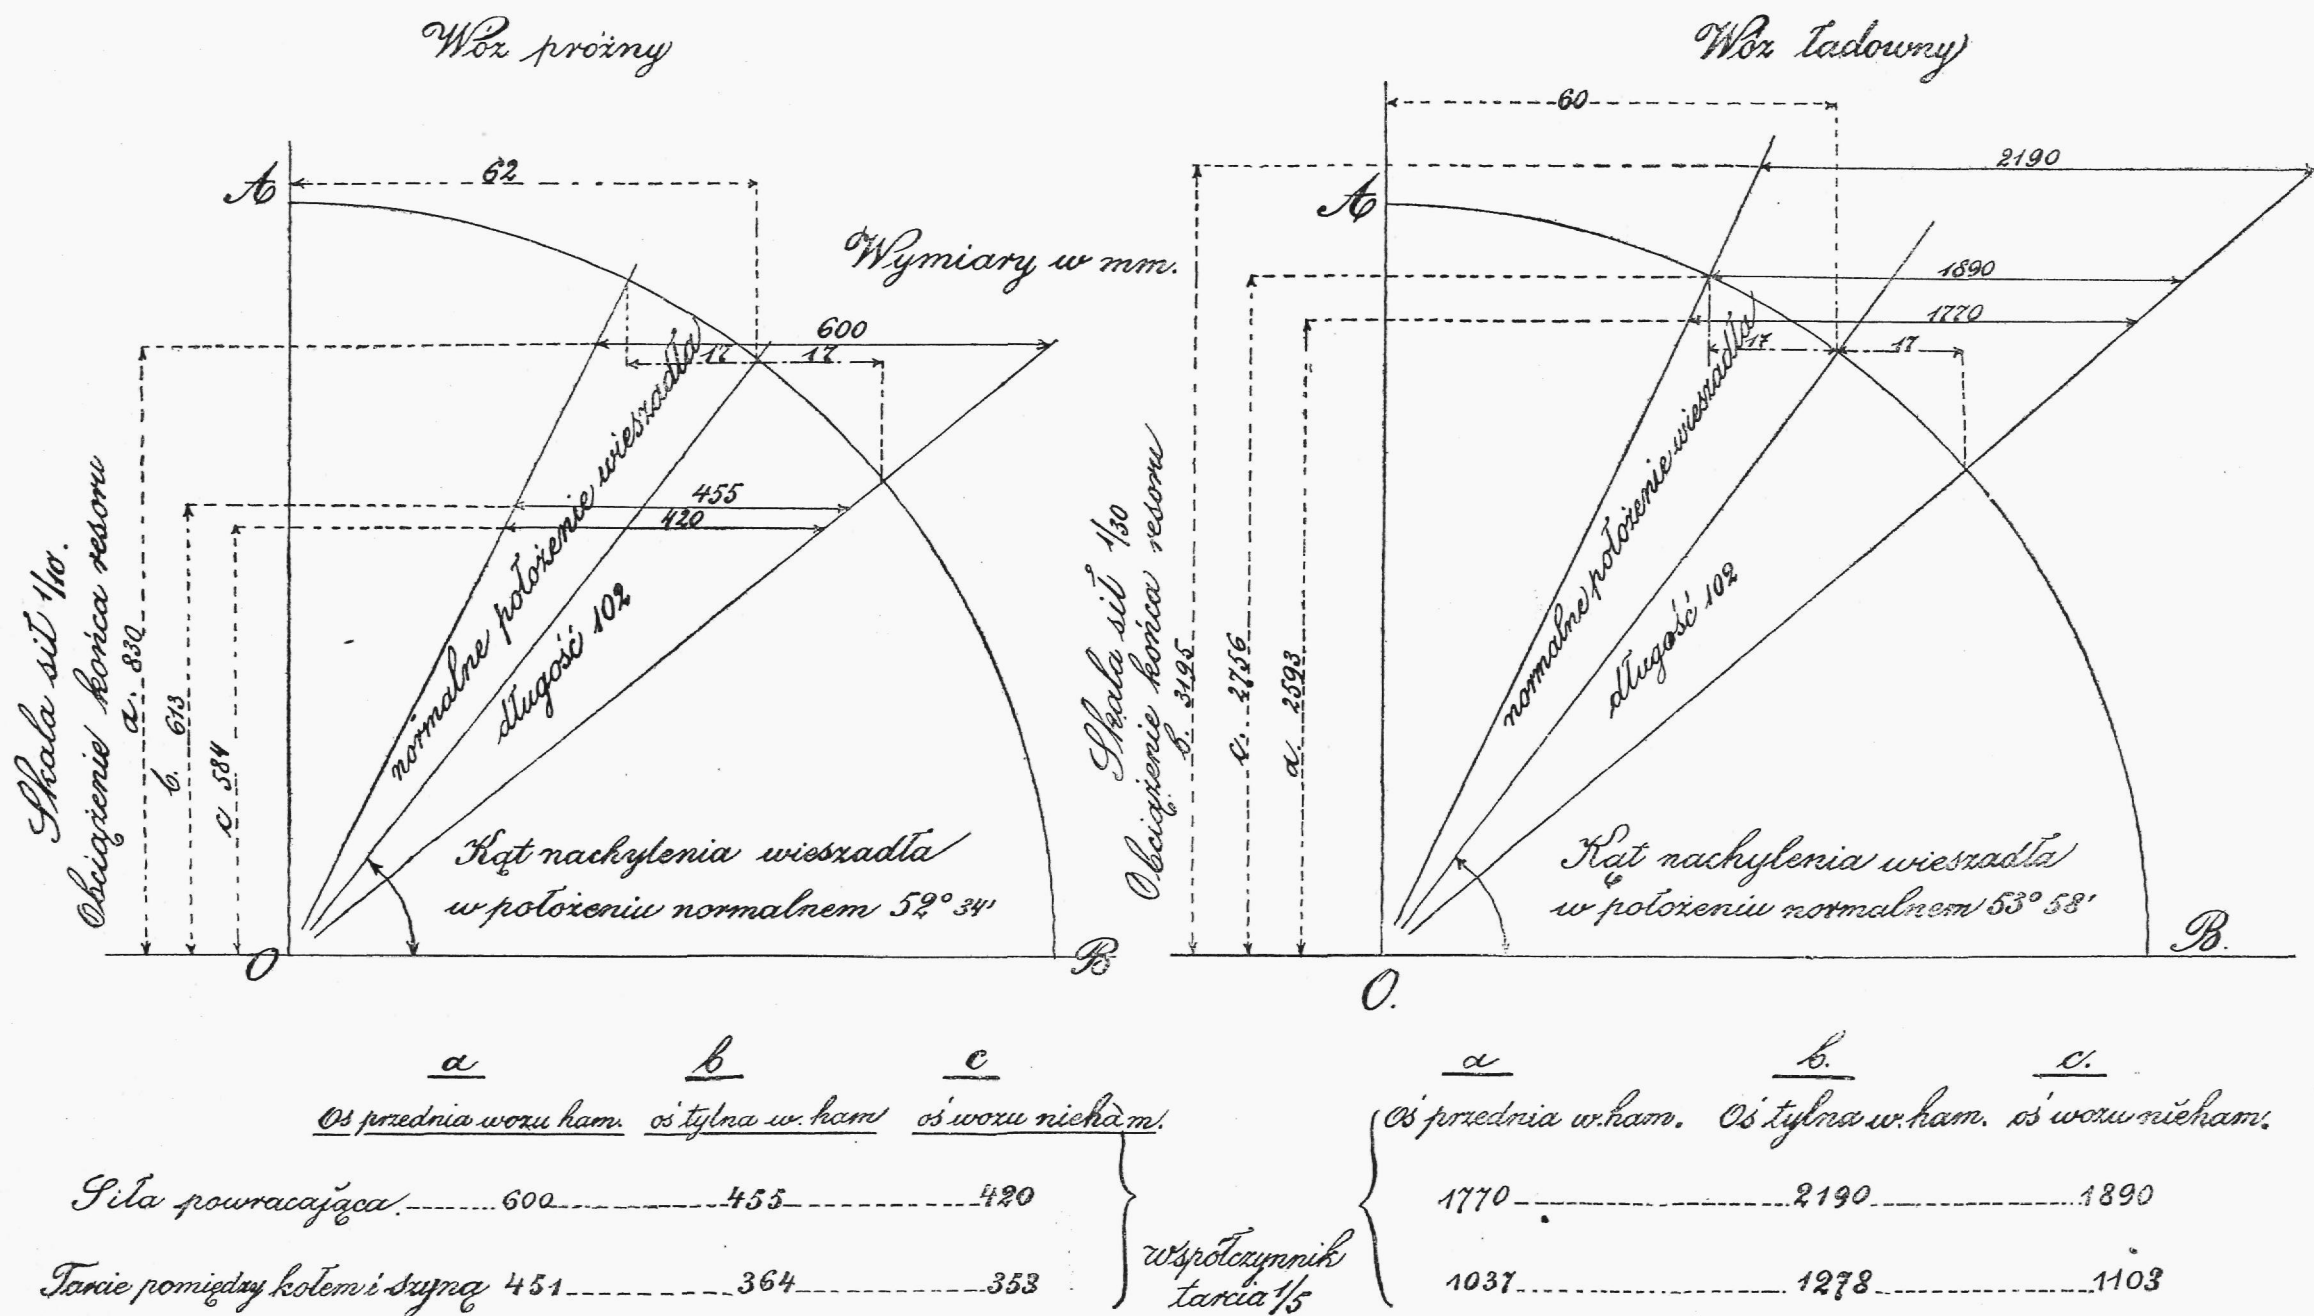 Wóz próżny
62
A
Wymiary w mm.
600
17 17
455
420
normalne położenie wieszadła
długość 102
Skala sił 1/10.
Obciążenie końca resoru
a. 830
b. 613
c 584
Kąt nachylenia wieszadła
w położeniu normalnem 52° 34'
O
B
Wóz ładowny
60
2190
A
1890
1770
17 17
normalne położenie wieszadła
długość 102
Skala sił 1/30
Obciążenie końca resoru
b. 3195
c. 2756
a. 2593
Kąt nachylenia wieszadła
w położeniu normalnem 53° 58'
O.
B.
a b c
Oś przednia wozu ham. oś tylna w. ham oś wozu nieham.
Siła powracająca 600 455 420
Tarcie pomiędzy kołem i szyną 451 364 353
współczynnik
tarcia 1/5
a b. c.
Oś przednia w. ham. Oś tylna w. ham. oś wozu nieham.
1770 2190 1890
1037 1278 1103